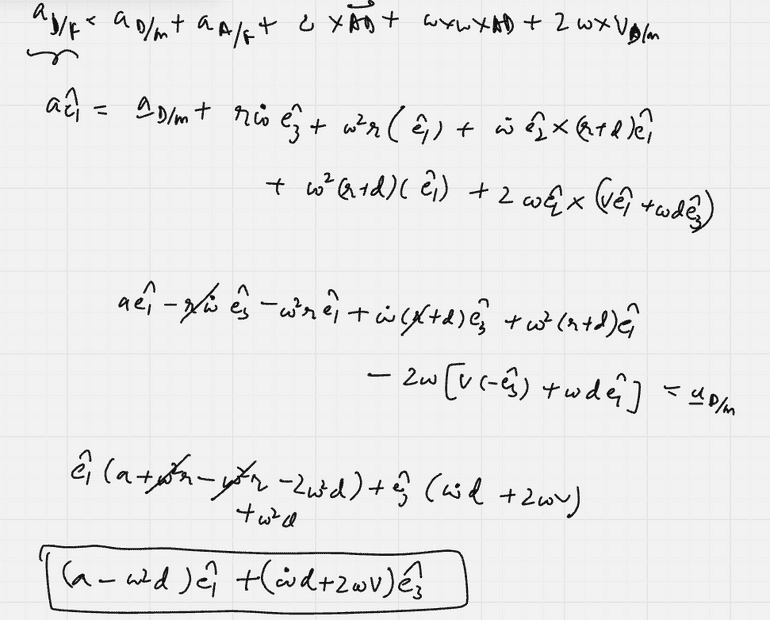 a_{D/F} = a_{D/m} + a_{A/F} + ω̇ × \vec{AD} + ω×ω×AD + 2ω×V_{D/m}
aê₁ = a̲_{D/m} + rω̇ ê₃ + ω²r(ê₁) + ω̇ ê₂ × (r+d)ê₁
+ ω²(r+d)(ê₁) + 2ωê₂ × (vê₁ + ωdê₃)
aê₁ - rω̇ ê₃ - ω²r ê₁ + ω̇(r+d)ê₃ + ω²(r+d)ê₁
- 2ω[v(-ê₃) + ωd ê₁] = a̲_{D/m}
ê₁(a + ω²r - ω²r - 2ω²d) + ê₃(ω̇d + 2ωv)
+ ω²d
(a - ω²d)ê₁ + (ω̇d + 2ωv)ê₃